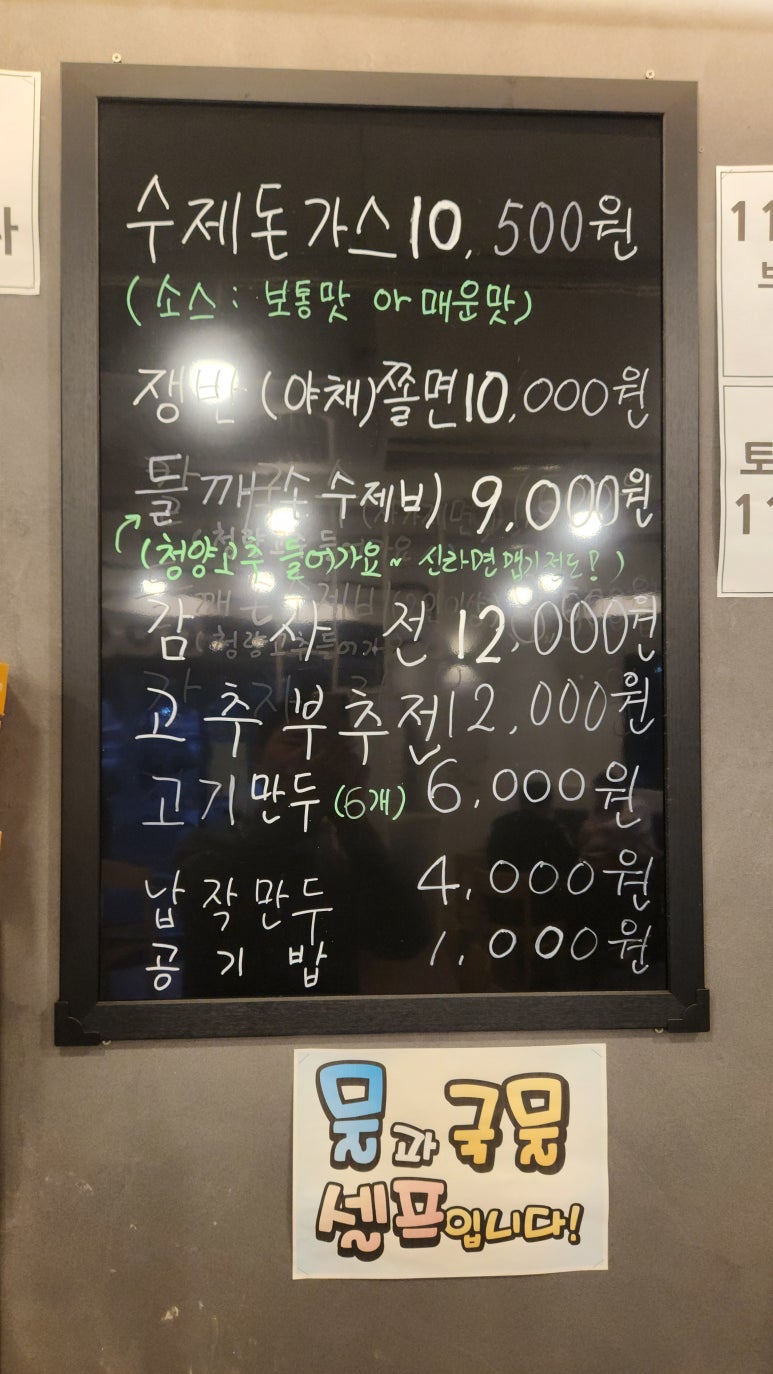 수제돈가스 10,500원
(소스 : 보통맛 or 매운맛)
쟁반(야채)쫄면 10,000원
수제비) 9,000원
(청양고추 들어가요~ 신라면맵기정도!)
감자전 12,000원
고추부추전 12,000원
고기만두 (6개) 6,000원
납작만두 4,000원
공기밥 1,000원
물과 국물
셀프입니다!
11
토
11